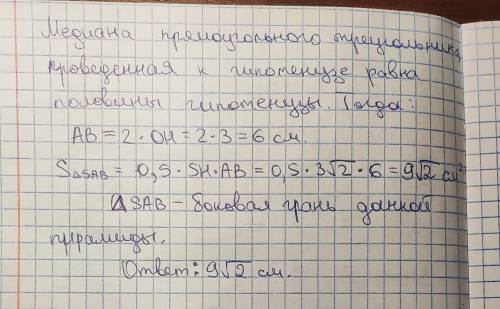 Медиана прямоугольного треугольника,
проведенная к гипотенузе равна
половины гипотенузы. Тогда:
AB = 2 · OH = 2 · 3 = 6 см.
S△SAB = 0,5 · SH · AB = 0,5 · 3√2 · 6 = 9√2 см²
△SAB – боковая грань данной
пирамиды.
Ответ: 9√2 см.